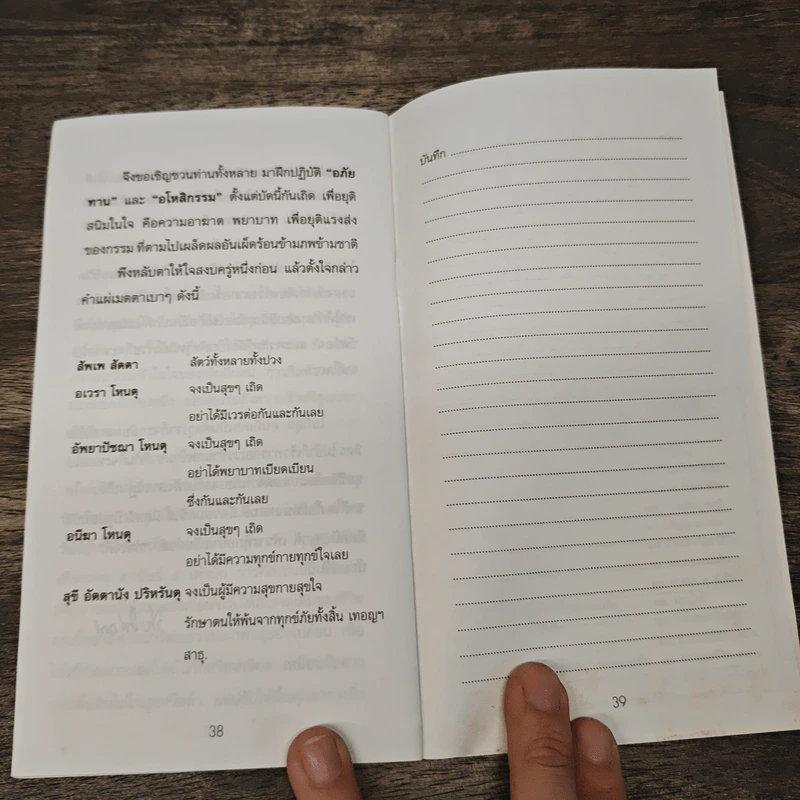 จึงขอเชิญชวนท่านทั้งหลาย มาฝึกปฏิบัติ “อภัย
ทาน” และ “อโหสิกรรม” ตั้งแต่บัดนี้กันเถิด เพื่อยุติ
สนิมในใจ คือความอาฆาต พยาบาท เพื่อยุติแรงส่ง
ของกรรม ที่ตามไปเผล็ดผลอันเผ็ดร้อนข้ามภพข้ามชาติ
พึงหลับตาให้ใจสงบครู่หนึ่งก่อน แล้วตั้งใจกล่าว
คำแผ่เมตตาเบาๆ ดังนี้
สัพเพ สัตตา สัตว์ทั้งหลายทั้งปวง
อเวรา โหนตุ จงเป็นสุขๆ เถิด
อย่าได้มีเวรต่อกันและกันเลย
อัพยาปัชฌา โหนตุ จงเป็นสุขๆ เถิด
อย่าได้พยาบาทเบียดเบียน
ซึ่งกันและกันเลย
อนีฆา โหนตุ จงเป็นสุขๆ เถิด
อย่าได้มีความทุกข์กายทุกข์ใจเลย
สุขี อัตตานัง ปริหรันตุ จงเป็นผู้มีความสุขกายสุขใจ
รักษาตนให้พ้นจากทุกข์ภัยทั้งสิ้น เทอญฯ
สาธุ.
38
บันทึก
39